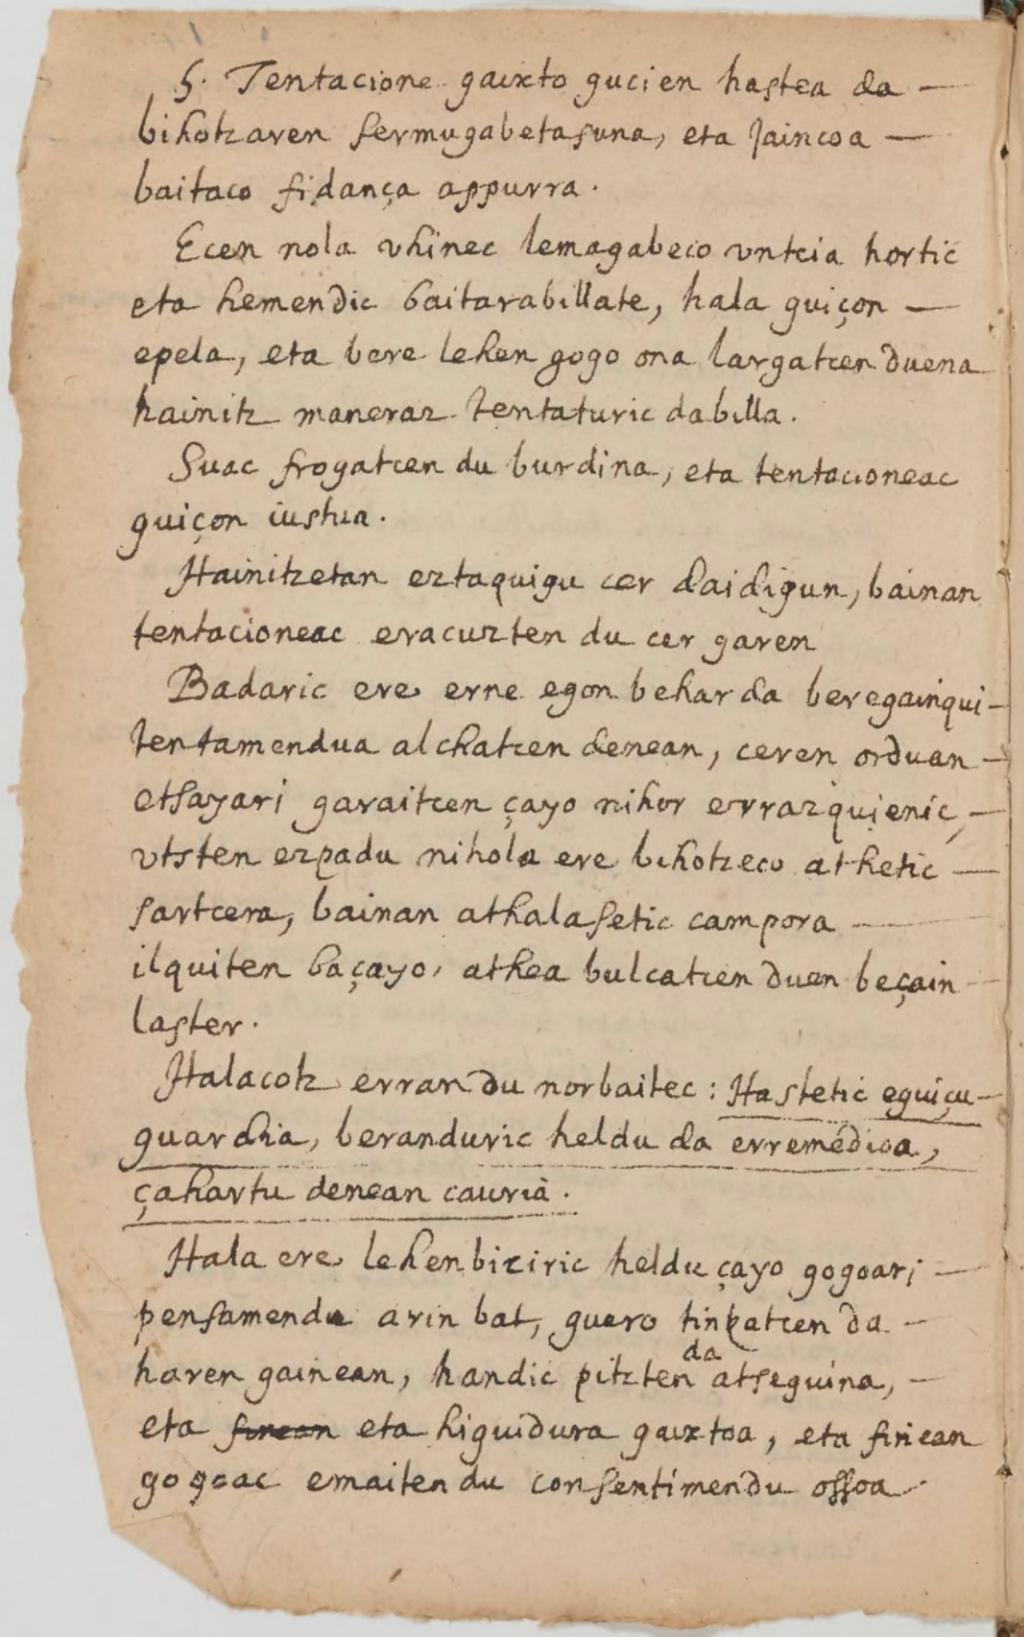 5. Tentacione gaixto gucien hastea da —
bihotzaren fermugabetasuna, eta Jaincoa —
baitaco fidança appurra.
Ecen nola vhinec lemagabeco vntcia hortic
eta hemendic baitarabillate, hala guiçon —
epela, eta bere lehen gogo ona largatcen duena
hainitz maneraz tentaturic dabilla.
Suac frogatcen du burdina, eta tentacioneac
guiçon iustua.
Hainitzetan eztaquigu cer daidigun, bainan
tentacioneac eracuzten du cer garen
Badaric ere erne egon behar da beregainqui —
tentamendua alchatcen denean, ceren orduan —
etsayari garaitcen çayo nihor errazquienic, —
vtsten ezpadu nihola ere bihotzeco athetic —
sartcera, bainan athalasetic campora —
ilquiten baçayo, athea bulcatcen duen beçain —
laster.
Halacotz erran du norbaitec: Hastetic eguiçu —
guardia, beranduric heldu da erremedioa,
çahartu denean cauria.
Hala ere lehenbiciric heldu çayo gogoari —
pensamendu arin bat, guero tinkatcen da —
haren gainean, handic pitzten da atseguina, —
eta finean eta higuidura gaixtoa, eta finean
gogoac emaiten du consentimendu ossoa